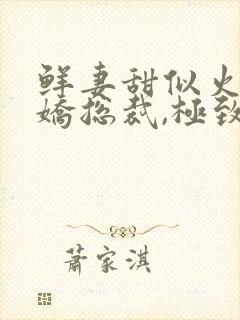 鲜妻甜似火
嬌総裁,極致
蕭家淇